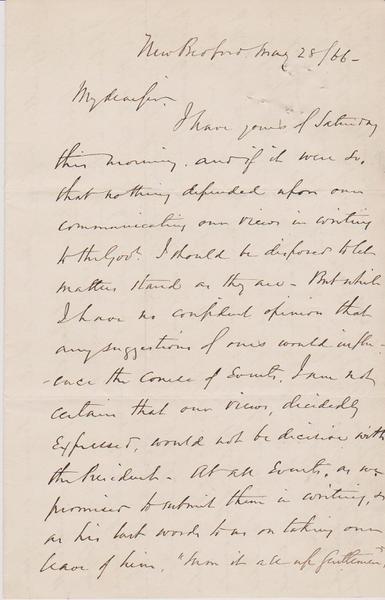 New Bedford, May 28/66 -
My dear Sir.
I have yours of Saturday
this morning. and if it were so,
that nothing depended upon our
communicating our views in writing
to the Govt. I should be disposed to let
matters stand as they are - But while
I have no confident opinion that
any suggestions of ours would influ-
-ence the course of Events, I am not
certain that our views, decidedly
Expressed, would not be decisive with
the President - At all Events, as we
promised to submit them in writing, &
as his last words to us on taking our
leave of him, "Sum it all up Gentlemen",